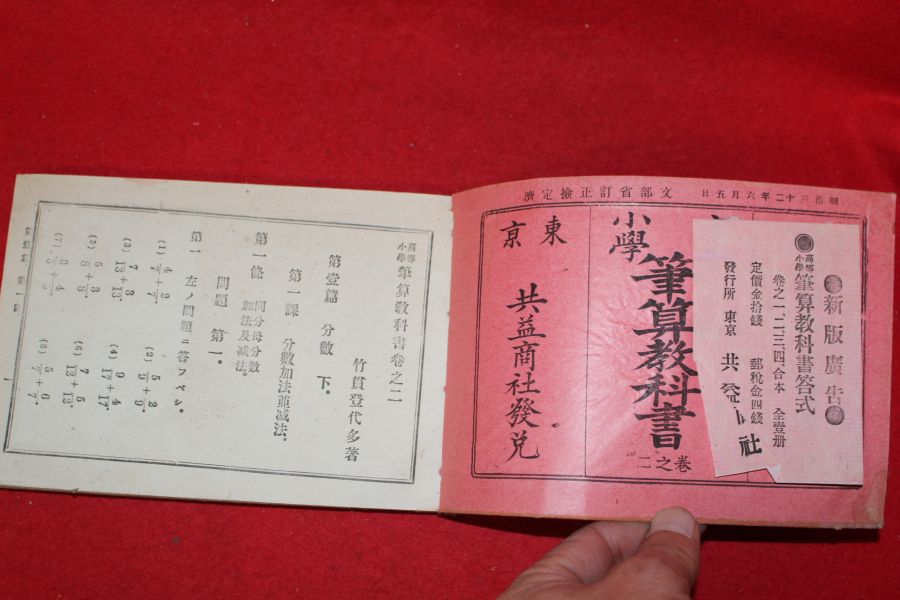 明治三十二年六月五日 文部省訂正檢定濟
新版廣告
高等小學 筆算教科書答式
卷之一、二三四合本 全壹册
定價金拾錢 郵稅金四錢
發行所 東京 共益 社
小學
筆算教科書
卷之二
東京
共益商社發兌
高等小學 筆算教科書卷之二
竹貫登代多著
第壹篇 分數 下.
第一課 分數加法並減法.
第一條 同分母分數加法及減法.
問題 第一.
第一 左ノ問題ニ答フベシ.
(1) 4/7 + 2/7. (2) 5/9 + 2/9.
(3) 7/13 + 3/13. (4) 9/17 + 4/17.
(5) 5/8 + 3/8. (6) 7/13 + 5/13.
(7) (8) 5/7 + 6/7.